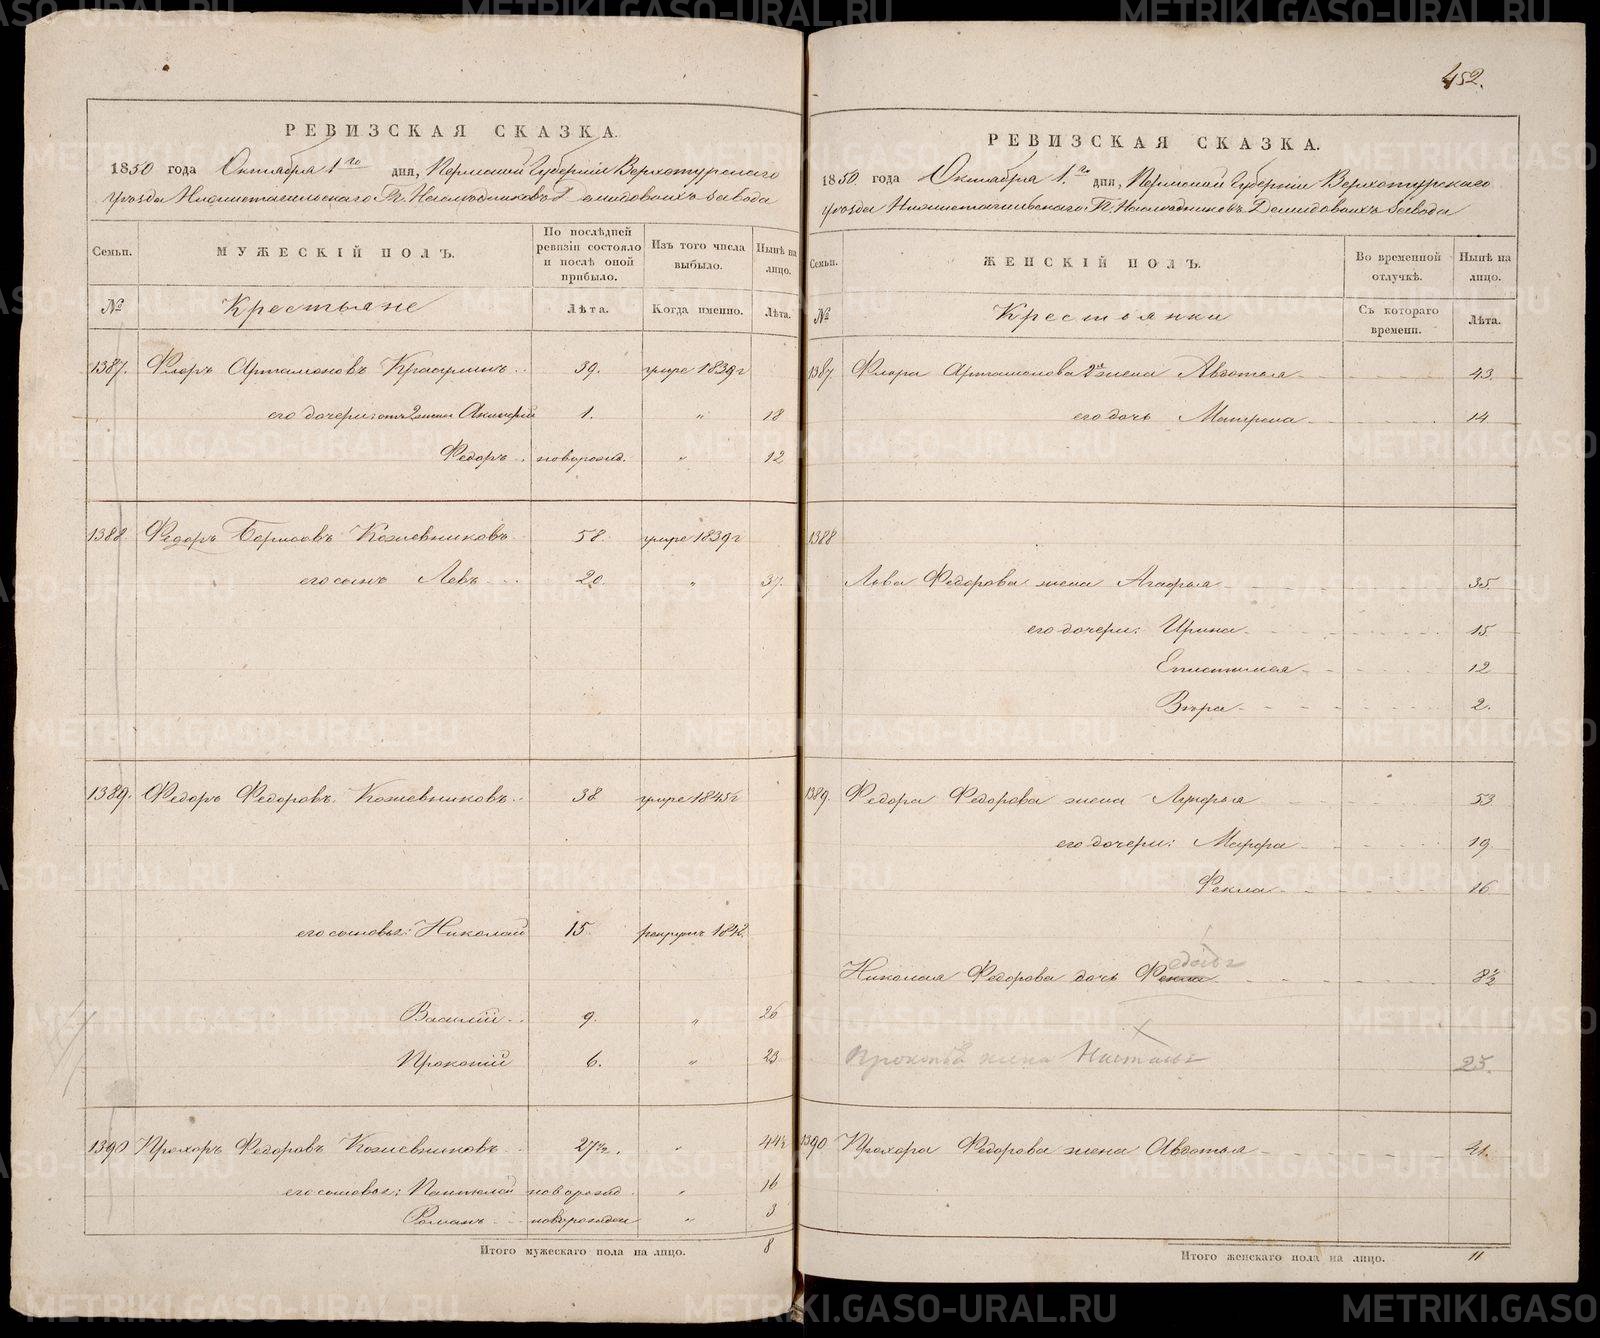 452.
РЕВИЗСКАЯ СКАЗКА.
1850 года Октября 1го дня, Пермской Губерніи Верхотурскаго
уезда Нижнетагильскаго Гг. Наследниковъ Демидовыхъ завода
Семьи. МУЖЕСКІЙ ПОЛЪ. По послѣдней ревизіи состояло и послѣ оной прибыло. Изъ того числа выбыло. Нынѣ на лицо.
№ Крестьяне Лѣта. Когда именно. Лѣта.
1387. Флоръ Артамоновъ 39. умре 1839г
его дочери: отъ 2 жены 1. " 18
Федоръ новорожд. " 12
1388. Федоръ Борисовъ Кожевниковъ 58. умре 1839г
его сынъ Левъ 20. " 37.
1389. Федоръ Федоровъ Кожевниковъ 38 умре 1845г
его сыновья: Николай 15 рекрутъ 1842.
Василій 9. " 26
Прокопій 6. " 23
1390 Прохоръ Федоровъ Кожевниковъ 27½. " 44½
его сыновья: Пантелей новорожд. " 16
Романъ новорожден " 3
Итого мужескаго пола на лицо. 8
РЕВИЗСКАЯ СКАЗКА.
1850. года Октября 1.го дня, Пермской Губерніи Верхотурскаго
уезда Нижнетагильскаго Гг. Наследниковъ Демидовыхъ завода
Семьи. ЖЕНСКІЙ ПОЛЪ. Во временной отлучкѣ. Нынѣ на лицо.
№ Крестьянки Съ котораго времени. Лѣта.
1387. Флора Артамонова 2я жена Авдотья 43.
его дочь Матрена 14
1388
Льва Федорова жена Агафья 35.
его дочери: Ирина 15.
Епистимея 12
Вѣра 2.
1389. Федора Федорова жена Лукерья 53
его дочери: Марфа 19.
Фекла 16
Николая Федорова дочь Фекла 8½
Прокопья жена Настасья 25.
1390 Прохора Федорова жена Авдотья 41.
Итого женскаго пола на лицо. 11
METRIKI.GASO-URAL.RU